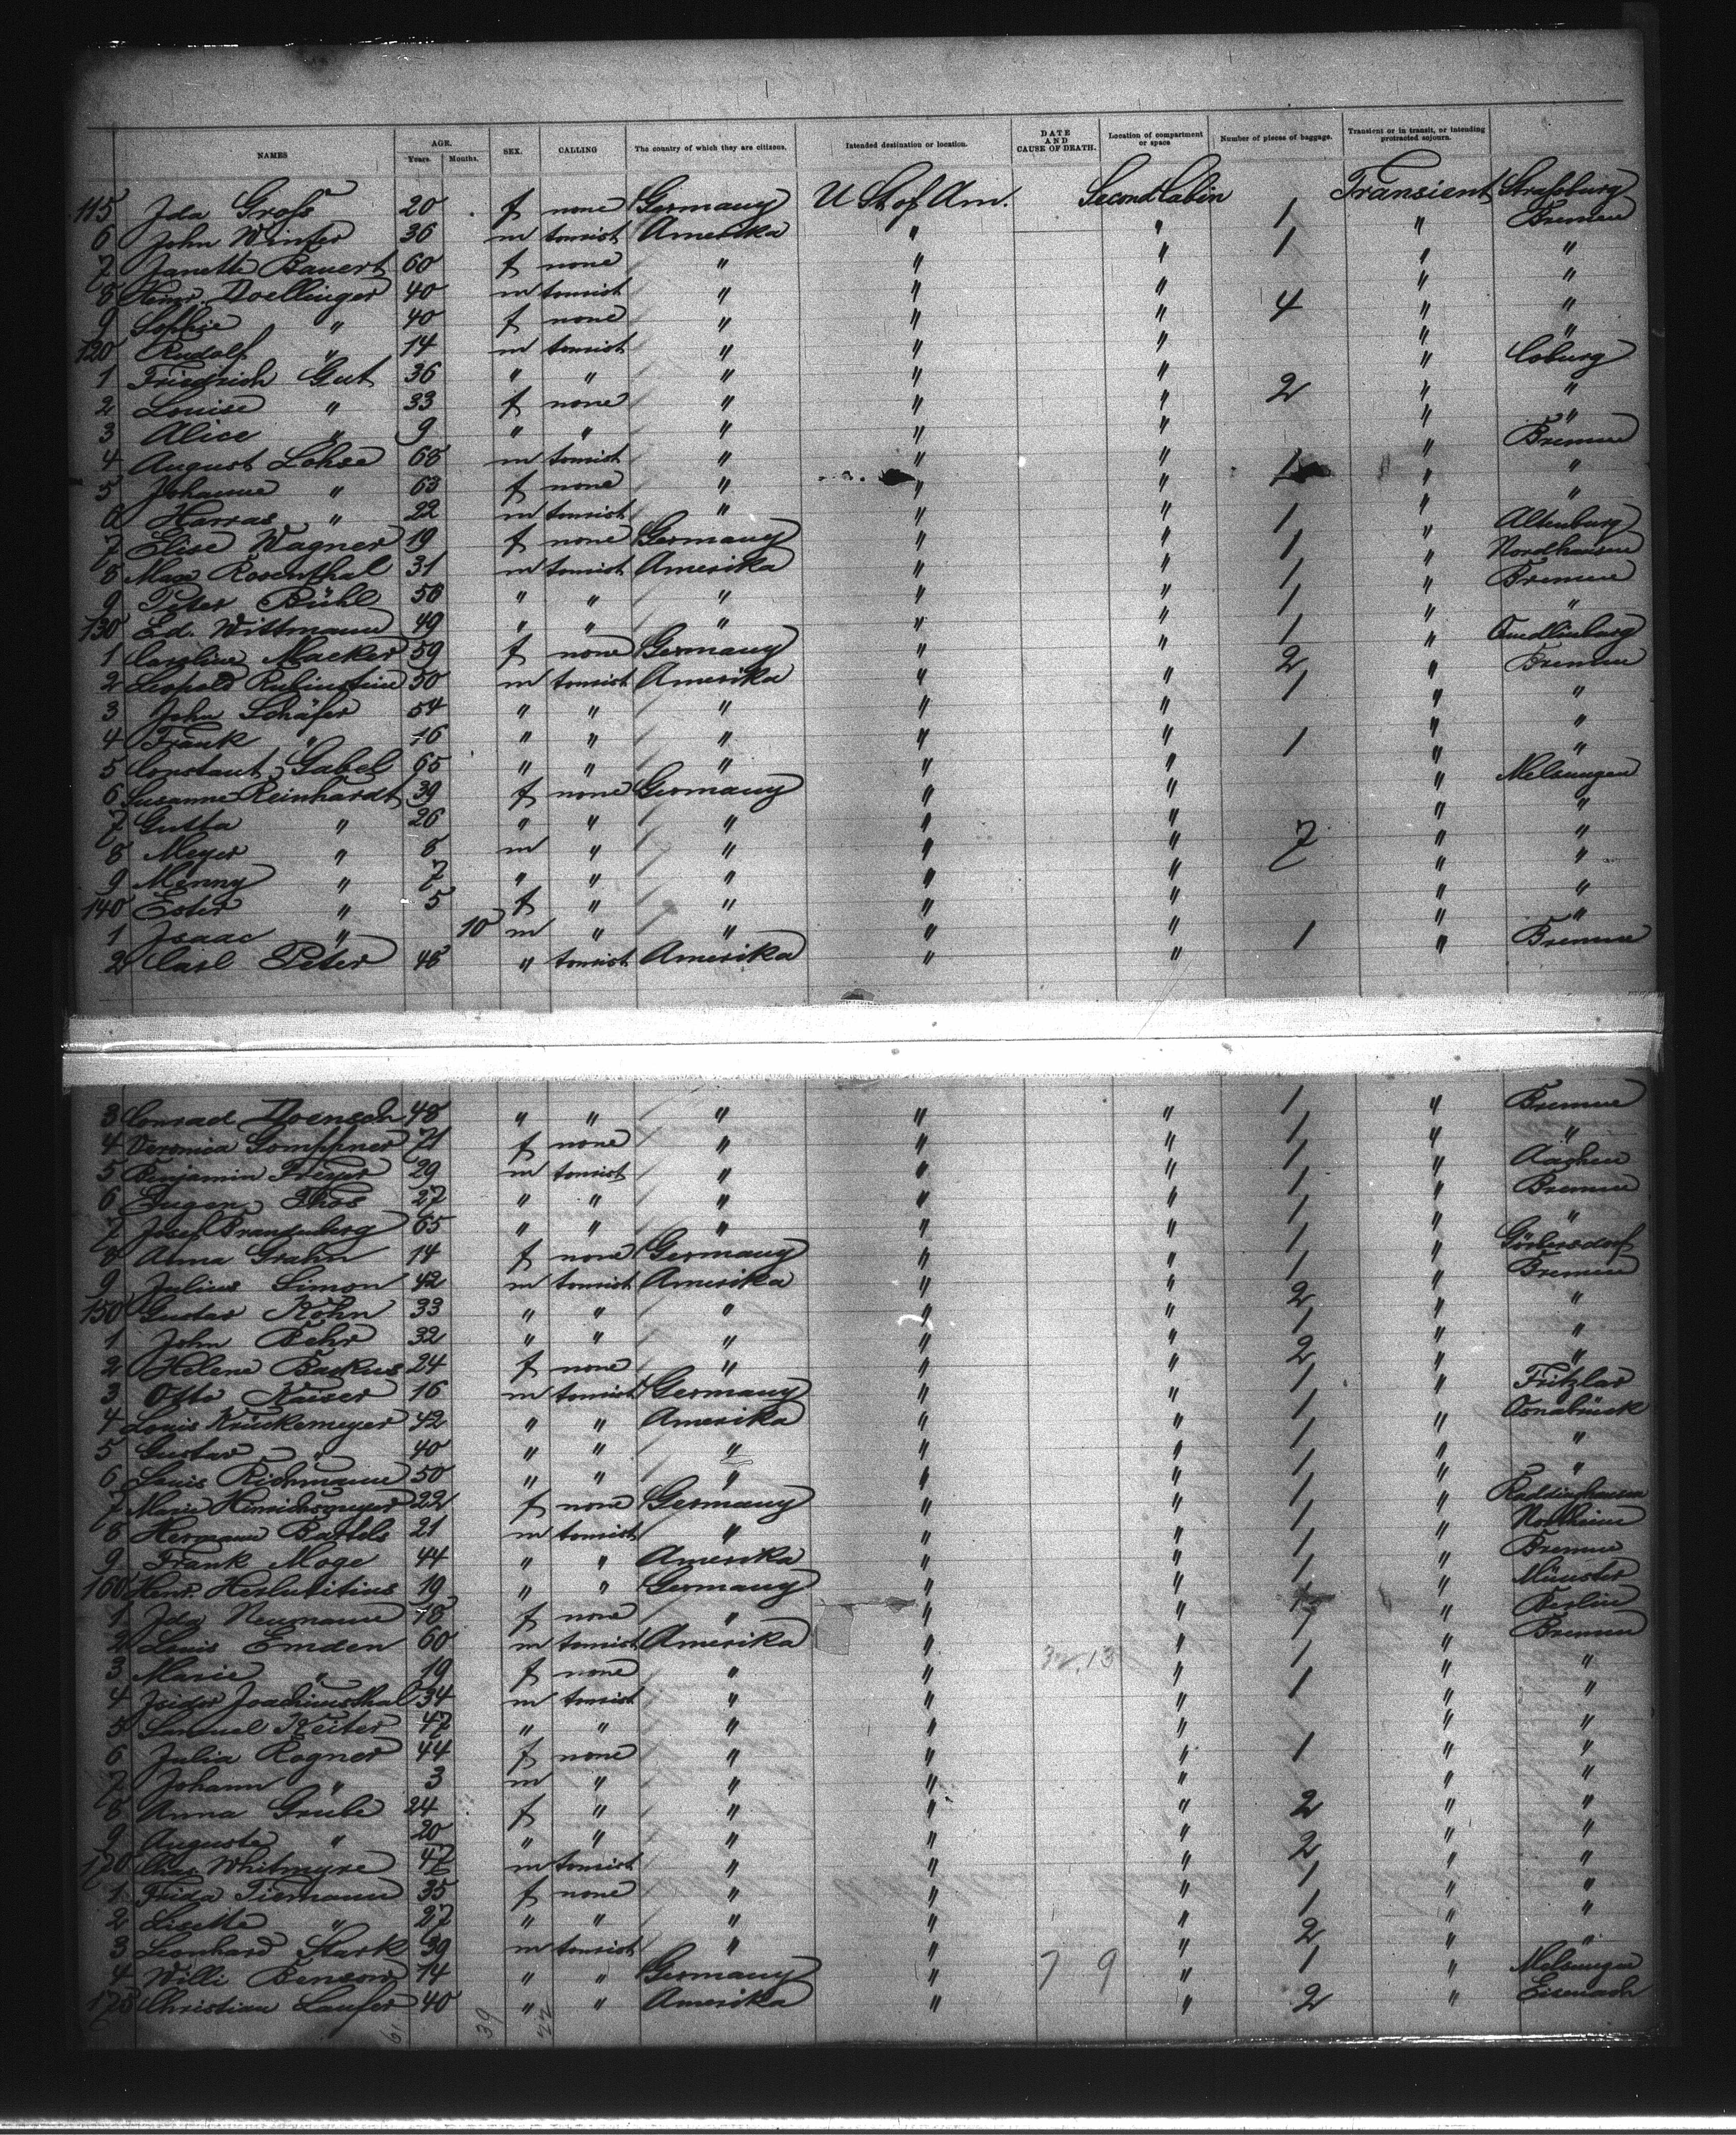 NAMES AGE. Years. Months. SEX. CALLING The country of which they are citizens. Intended destination or location. DATE AND CAUSE OF DEATH. Location of compartment or space Number of pieces of baggage. Transient or in transit, or intending protracted sojourn.
115 Ida Groß 20 f none Germany U St of Am. Second Cabin 1 Transient Straßburg
6 John Winter 36 m tourist Amerika " " 1 " Bremen
7 Janette Bauert 60 f none " " " " "
8 Heinr. Doellinger 40 m tourist " " " " "
9 Sophie " 40 f none " " " 4 " "
120 Rudolf " 14 m tourist " " " " "
1 Friedrich Gut 36 " " " " " " Coburg
2 Louise " 33 f none " " " 2 " "
3 Alice " 9 " " " " " " "
4 August Lohse 68 m tourist " " " " Bremen
5 Johanne " 63 f none " " " 1 " "
6 Harras " 22 m tourist " " " " "
7 Elise Wagner 19 f none Germany " " 1 " Altenburg
8 Max Rosenthal 31 m tourist Amerika " " 1 " Nordhausen
9 Peter Bühl 56 " " " " " 1 " Bremen
130 Ed. Wittmann 49 " " " " " 1 " "
1 Caroline Macker 59 f none Germany " " 1 " Quedlinburg
2 Leopold Rubinstein 50 m tourist Amerika " " 2 " Bremen
3 John Schäfer 54 " " " " " 1 " "
4 Frank " 16 " " " " " " "
5 Constant. Gabel 65 " " " " " 1 " "
6 Susanne Reinhardt 39 f none Germany " " " Melsungen
7 Gutta " 26 " " " " " " "
8 Meyer " 8 m " " " " 7 " "
9 Menny " 7 " " " " " " "
140 Ester " 5 f " " " " " "
1 Isaac " 10 m " " " " " "
2 Carl Peter 48 " tourist Amerika " " 1 " Bremen
3 Conrad Doensch 48 " " " " " 1 " Bremen
4 Veronica Gomphner 71 f none " " " 1 " "
5 Benjamin Freyer 29 m tourist " " " 1 " Aachen
6 Eugen Thos 27 " " " " " 1 " Bremen
7 Josef Brandenberg 65 " " " " " 1 " "
8 Anna Grahn 14 f none Germany " " 1 " Görbersdorf
9 Julius Simon 42 m tourist Amerika " " 1 " Bremen
150 Gustav Kohn 33 " " " " " 2 " "
1 John Behr 32 " " " " " 1 " "
2 Helene Backus 24 f none " " " 2 " "
3 Otto Kaiser 16 m tourist Germany " " 1 " Fritzlar
4 Louis Krückemeyer 42 " " Amerika " " 1 " Osnabrück
5 Gustav " 40 " " " " " 1 " "
6 Louis Richmann 50 " " " " " 1 " "
7 Marie Hinrichsmeyer 22 f none Germany " " 1 "
8 Hermann Bartels 21 m tourist " " " 1 " Northeim
9 Frank Moge 44 " " Amerika " " 1 " Bremen
160 Henr. 19 " " Germany " " 1 " Münster
1 Ida Neumann 18 f none " " " 1 " Berlin
2 Louis Emden 60 m tourist Amerika " " 1 " Bremen
3 Marie " 19 f none " " 32.13 " 1 " "
4 Isidor Joachimsthal 34 m tourist " " " 1 " "
5 Samuel Reiter 47 " " " " " " "
6 Julia Rogner 44 f none " " " 1 " "
7 Johann " 3 m " " " " " "
8 Anna Grube 24 f " " " " 2 " "
9 Auguste " 20 " " " " " " "
170 Chas. Whitmyre 47 m tourist " " " 2 " "
1 Frida Tiemann 35 f none " " " 1 " "
2 Lisette " 27 " " " " " 1 " "
3 Leonhard Stark 39 m tourist " " " 2 " "
4 Willi Benson 14 " " Germany " 7 9 " 1 " Melsungen
175 Christian Laufer 40 " " Amerika " " 2 " Eisenach
61 39 22